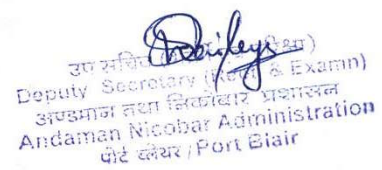 उप सचिव
Deputy Secretary & Examn)
अण्डमान तथा निकोबार प्रशासन
Andaman Nicobar Administration
पोर्ट ब्लेयर / Port Blair